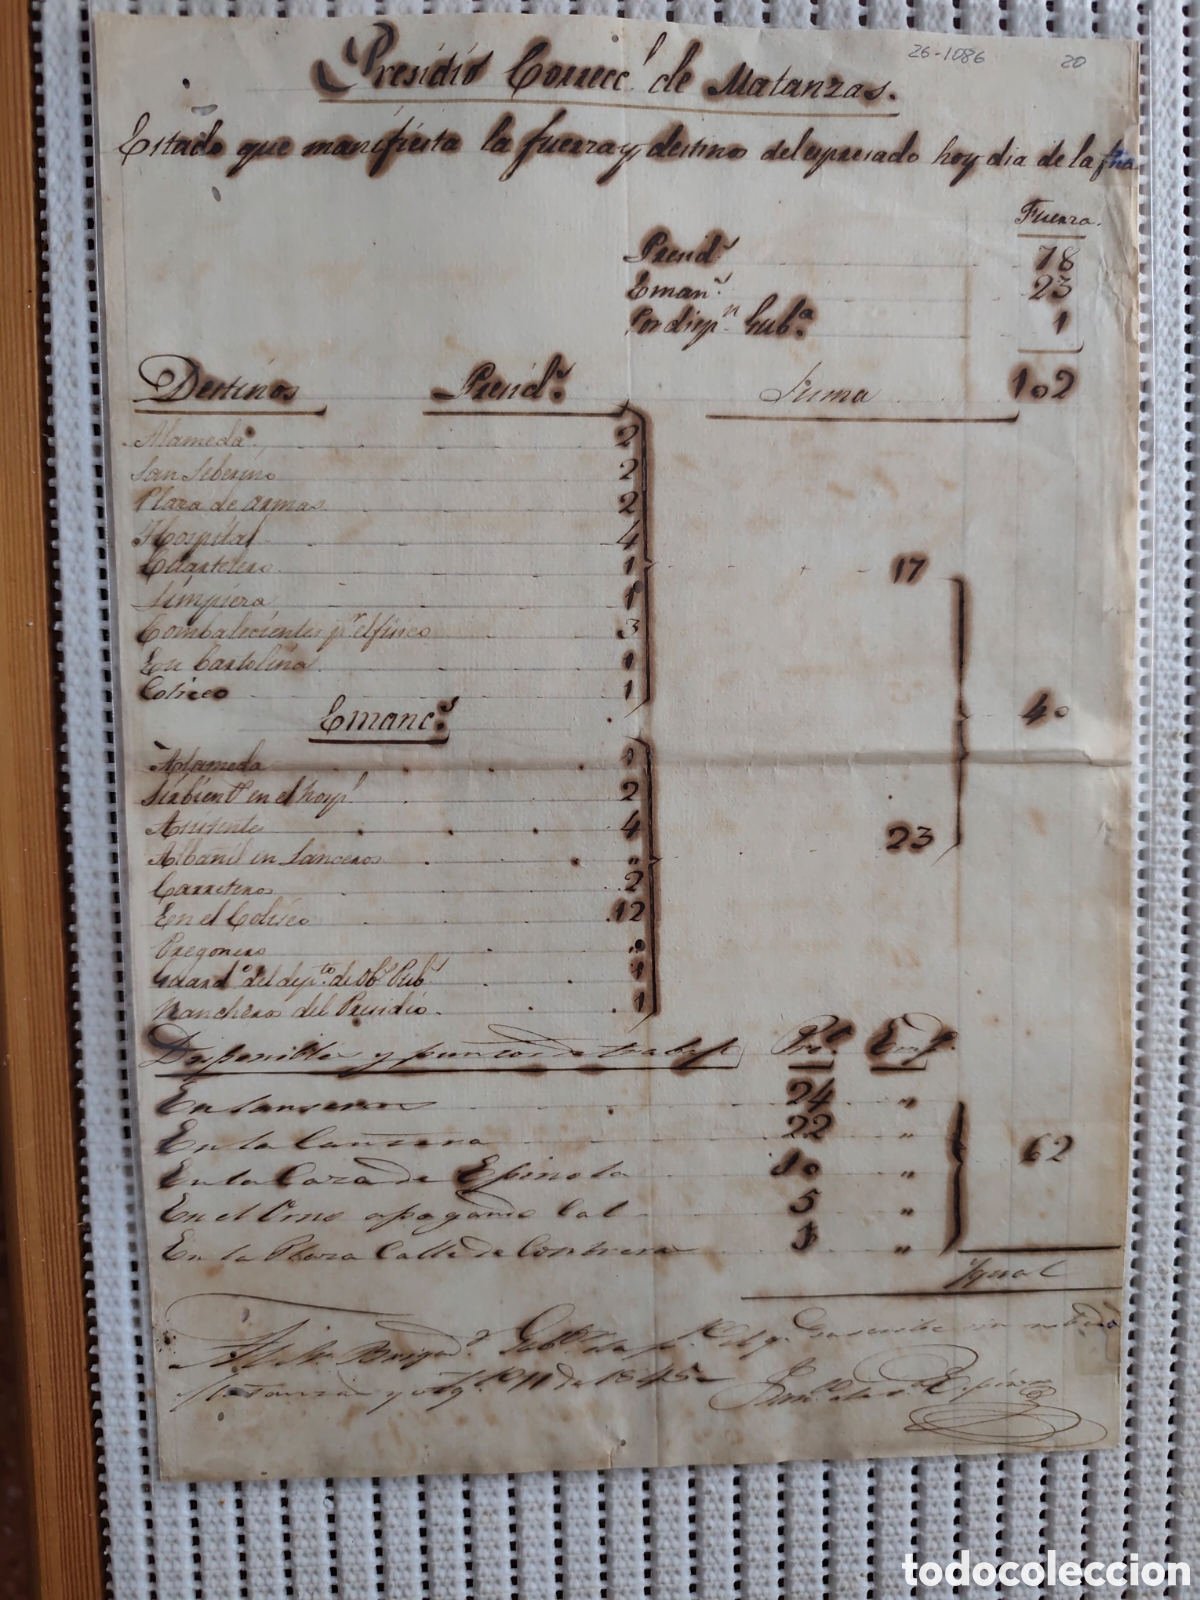 26-1086 20
Presidio Correcc.l de Matanzas.
Estado que manifiesta la fuerza y destino del espresado hoy dia de la fha
Fuerza.
Presid.s 78
Eman.s 23
Por disp.n Gub.a 1
Destinos Presid.s Suma 102
Alameda 2
San Seberino 2
Plaza de armas 2
Hospital 4
Cuartelero 1 17
Limpieza 1
Combalecientes p.r el fisico 3
En Cartolina 1
Coliceo 1
Emanc.s 40
Alameda 1
Sirbient.s en el hosp.l 2
Asistente 4
Albañil en Lanceros " 23
Carreteros 2
En el Coliseo 12
Pregonero "
Guard.o del dep.to de Ob.s Pub.s 1
Ranchero del Presidio. 1
Disponibles y puntos de trabajo Pre.s Emp.
En lanseros 24 "
En la Cantera 22 " 62
En la Casa de Espinola 10 "
En el Orno apagando Cal 5 "
En la Plaza Calle de Contrera 1 "
Ygual
Al Sr. Brigad.r Gob.r de la p.
Matanzas y Ag.to 11 de 1845
todocoleccion